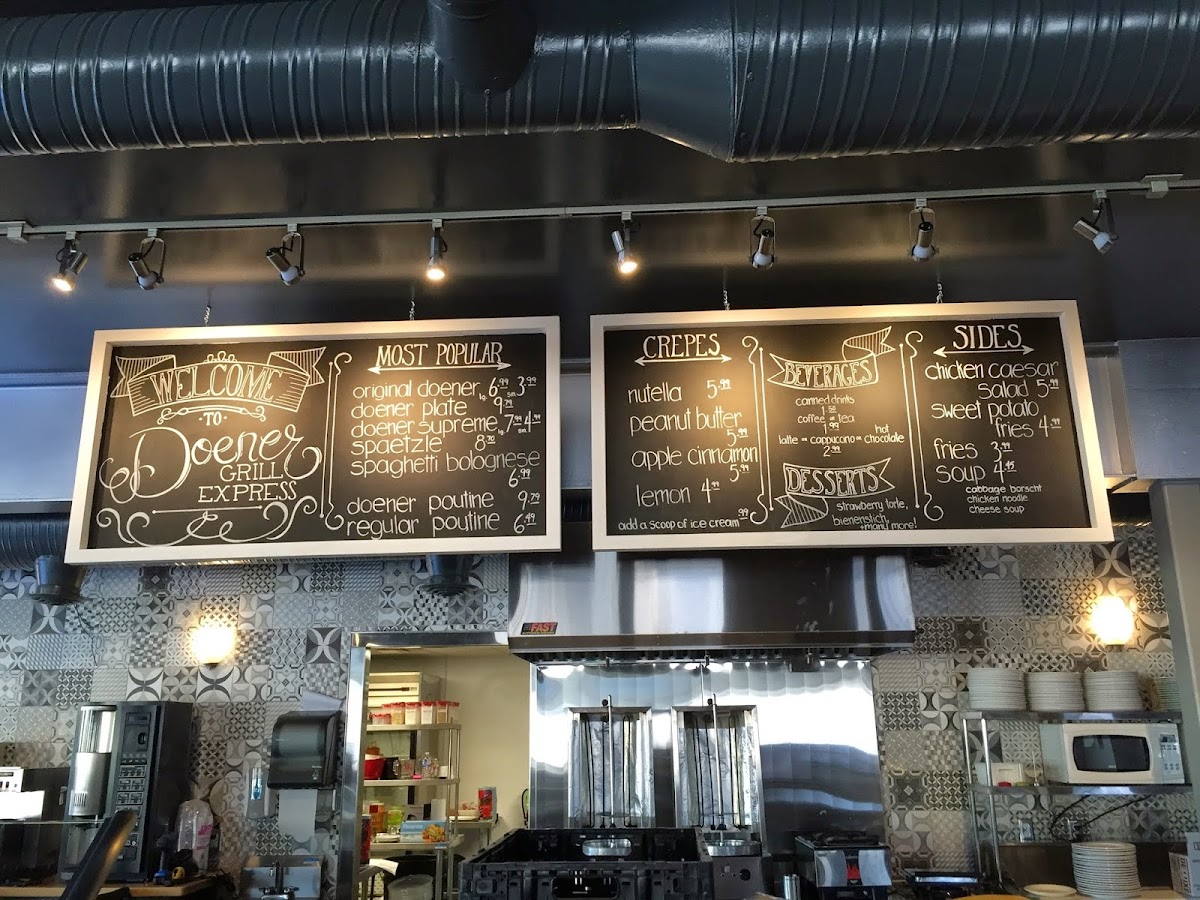 WELCOME
TO
Doener
GRILL
EXPRESS
MOST POPULAR
original doener lg 6.99 sm 3.99
doener plate 9.79
doener supreme lg 7.99 sm 4.99
spaetzle 8.70
spaghetti bolognese
6.99
doener poutine 9.79
regular poutine 6.49
CREPES
nutella 5.99
peanut butter
5.99
apple cinnamon
5.99
lemon 4.99
add a scoop of ice cream .99
BEVERAGES
canned drinks
1.50
coffee or tea
1.99
latte or cappuccino or hot chocolate
2.99
DESSERTS
strawberry torte,
bienenstich,
+many more!
SIDES
chicken caesar
salad 5.99
sweet potato
fries 4.99
fries 3.99
soup 4.95
cabbage borscht
chicken noodle
cheese soup
FAST